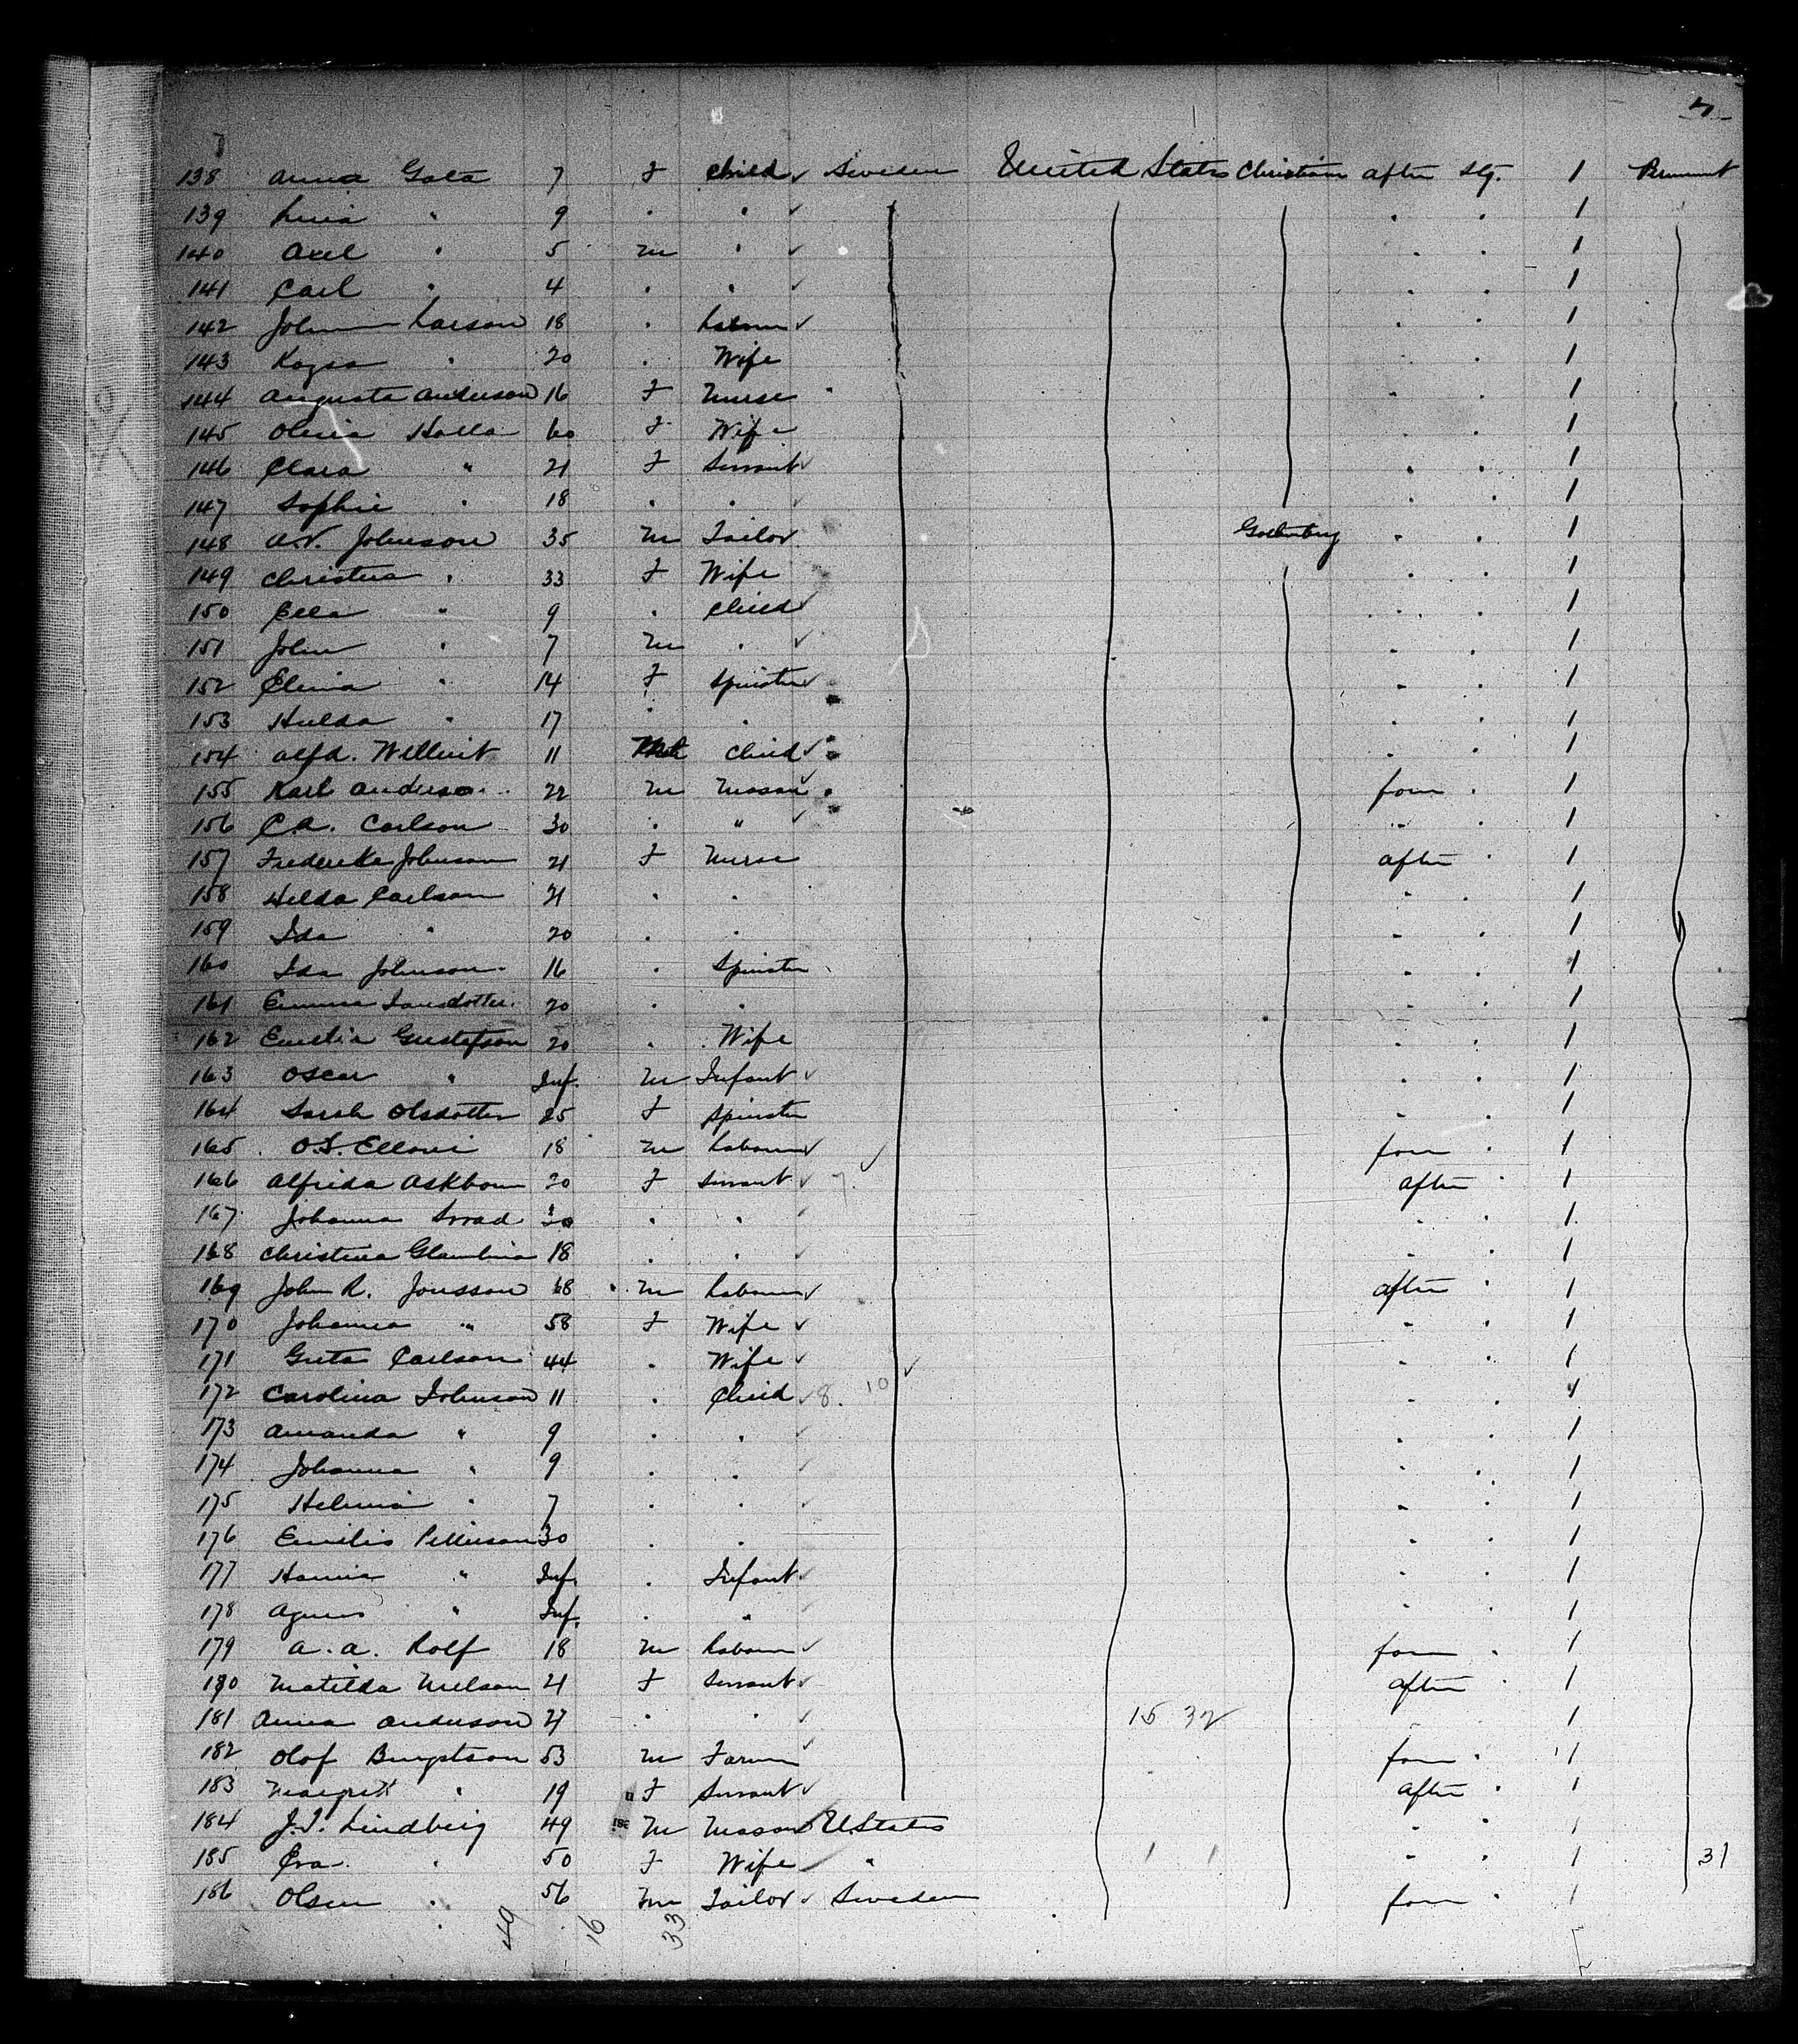 7
138 Anna Gola 7 F Child ✓ Sweden United States Christiania after Stg. 1 Permanent
139 " 9 " " ✓ " " 1
140 Axel " 5 M " ✓ " " 1
141 Carl " 4 " " ✓ " " 1
142 Larson 18 " Labourer ✓ " " 1
143 Kajsa " 20 " Wife " " 1
144 Augusta Anderson 16 F Nurse " " 1
145 Kalla 60 F Wife " " 1
146 Clara " 21 F Servant ✓ " " 1
147 Sophie " 18 " " ✓ " " 1
148 Johnson 35 M Tailor Gothenburg " " 1
149 Christina " 33 F Wife " " 1
150 " 9 " Child ✓ " " 1
151 John " 7 M " ✓ " " 1
152 " 14 F Spinster ✓ " " 1
153 Hulda " 17 " " " " 1
154 Alfd. 11 Child ✓ " " 1
155 Karl Anderson 22 M Mason ✓ fore " 1
156 C.A. Carlson 30 " " ✓ " " 1
157 Frederika Johnson 21 F Nurse after " 1
158 Hilda Carlson 21 " " " " 1
159 Ida " 20 " " " " 1
160 Ida Johnson 16 " Spinster " " 1
161 Emma 20 " " " " 1
162 Emelia Gustafson 20 " Wife " " 1
163 Oscar " Inf. M Infant ✓ " " 1
164 Sarah Olsdotter 25 F Spinster " " 1
165 18 M Labourer ✓ fore " 1
166 Alfrida Askbom 20 F Servant ✓ after " 1
167 Johanna " " ✓ " " 1
168 Christina 18 " " ✓ " " 1
169 John R. Jonsson 68 M Labourer ✓ after " 1
170 Johanna " 58 F Wife ✓ " " 1
171 Greta Carlson 44 " Wife ✓ " " 1
172 Carolina Johnson 11 " Child ✓ 8. 10 " " 1
173 Amanda " 9 " " ✓ " " 1
174 Johanna " 9 " " ✓ " " 1
175 " 7 " " ✓ " " 1
176 Emilia 30 " " " " 1
177 " Inf. " Infant ✓ " " 1
178 Agnes " Inf. " " " " 1
179 A. A. Rolf 18 M Labourer ✓ fore " 1
180 Matilda Nelson 21 F Servant ✓ after " 1
181 Anna Anderson 27 " " ✓ 15 32 " " 1
182 Olof Bengtson 53 M Farmer ✓ fore " 1
183 Margrett " 19 F Servant ✓ after " 1
184 Lindberg 49 M Mason U States " " 1
185 Eva " 50 F Wife " " " 1 31
186 Olsen " 56 M Tailor ✓ Sweden fore " 1
49 16 33